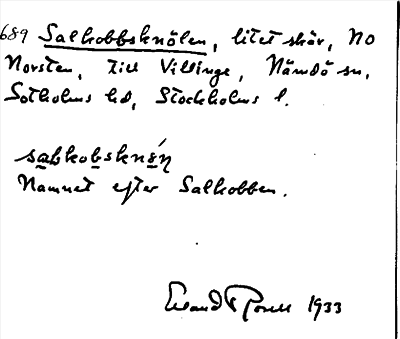 689 Salkobbsknölen, litet skär, NO
Norsten, till Villinge, Nämdö sn,
Sotholms hd, Stockholms l.
sạbkobsknö́ṇ
Namnet efter Salkobben.
1933